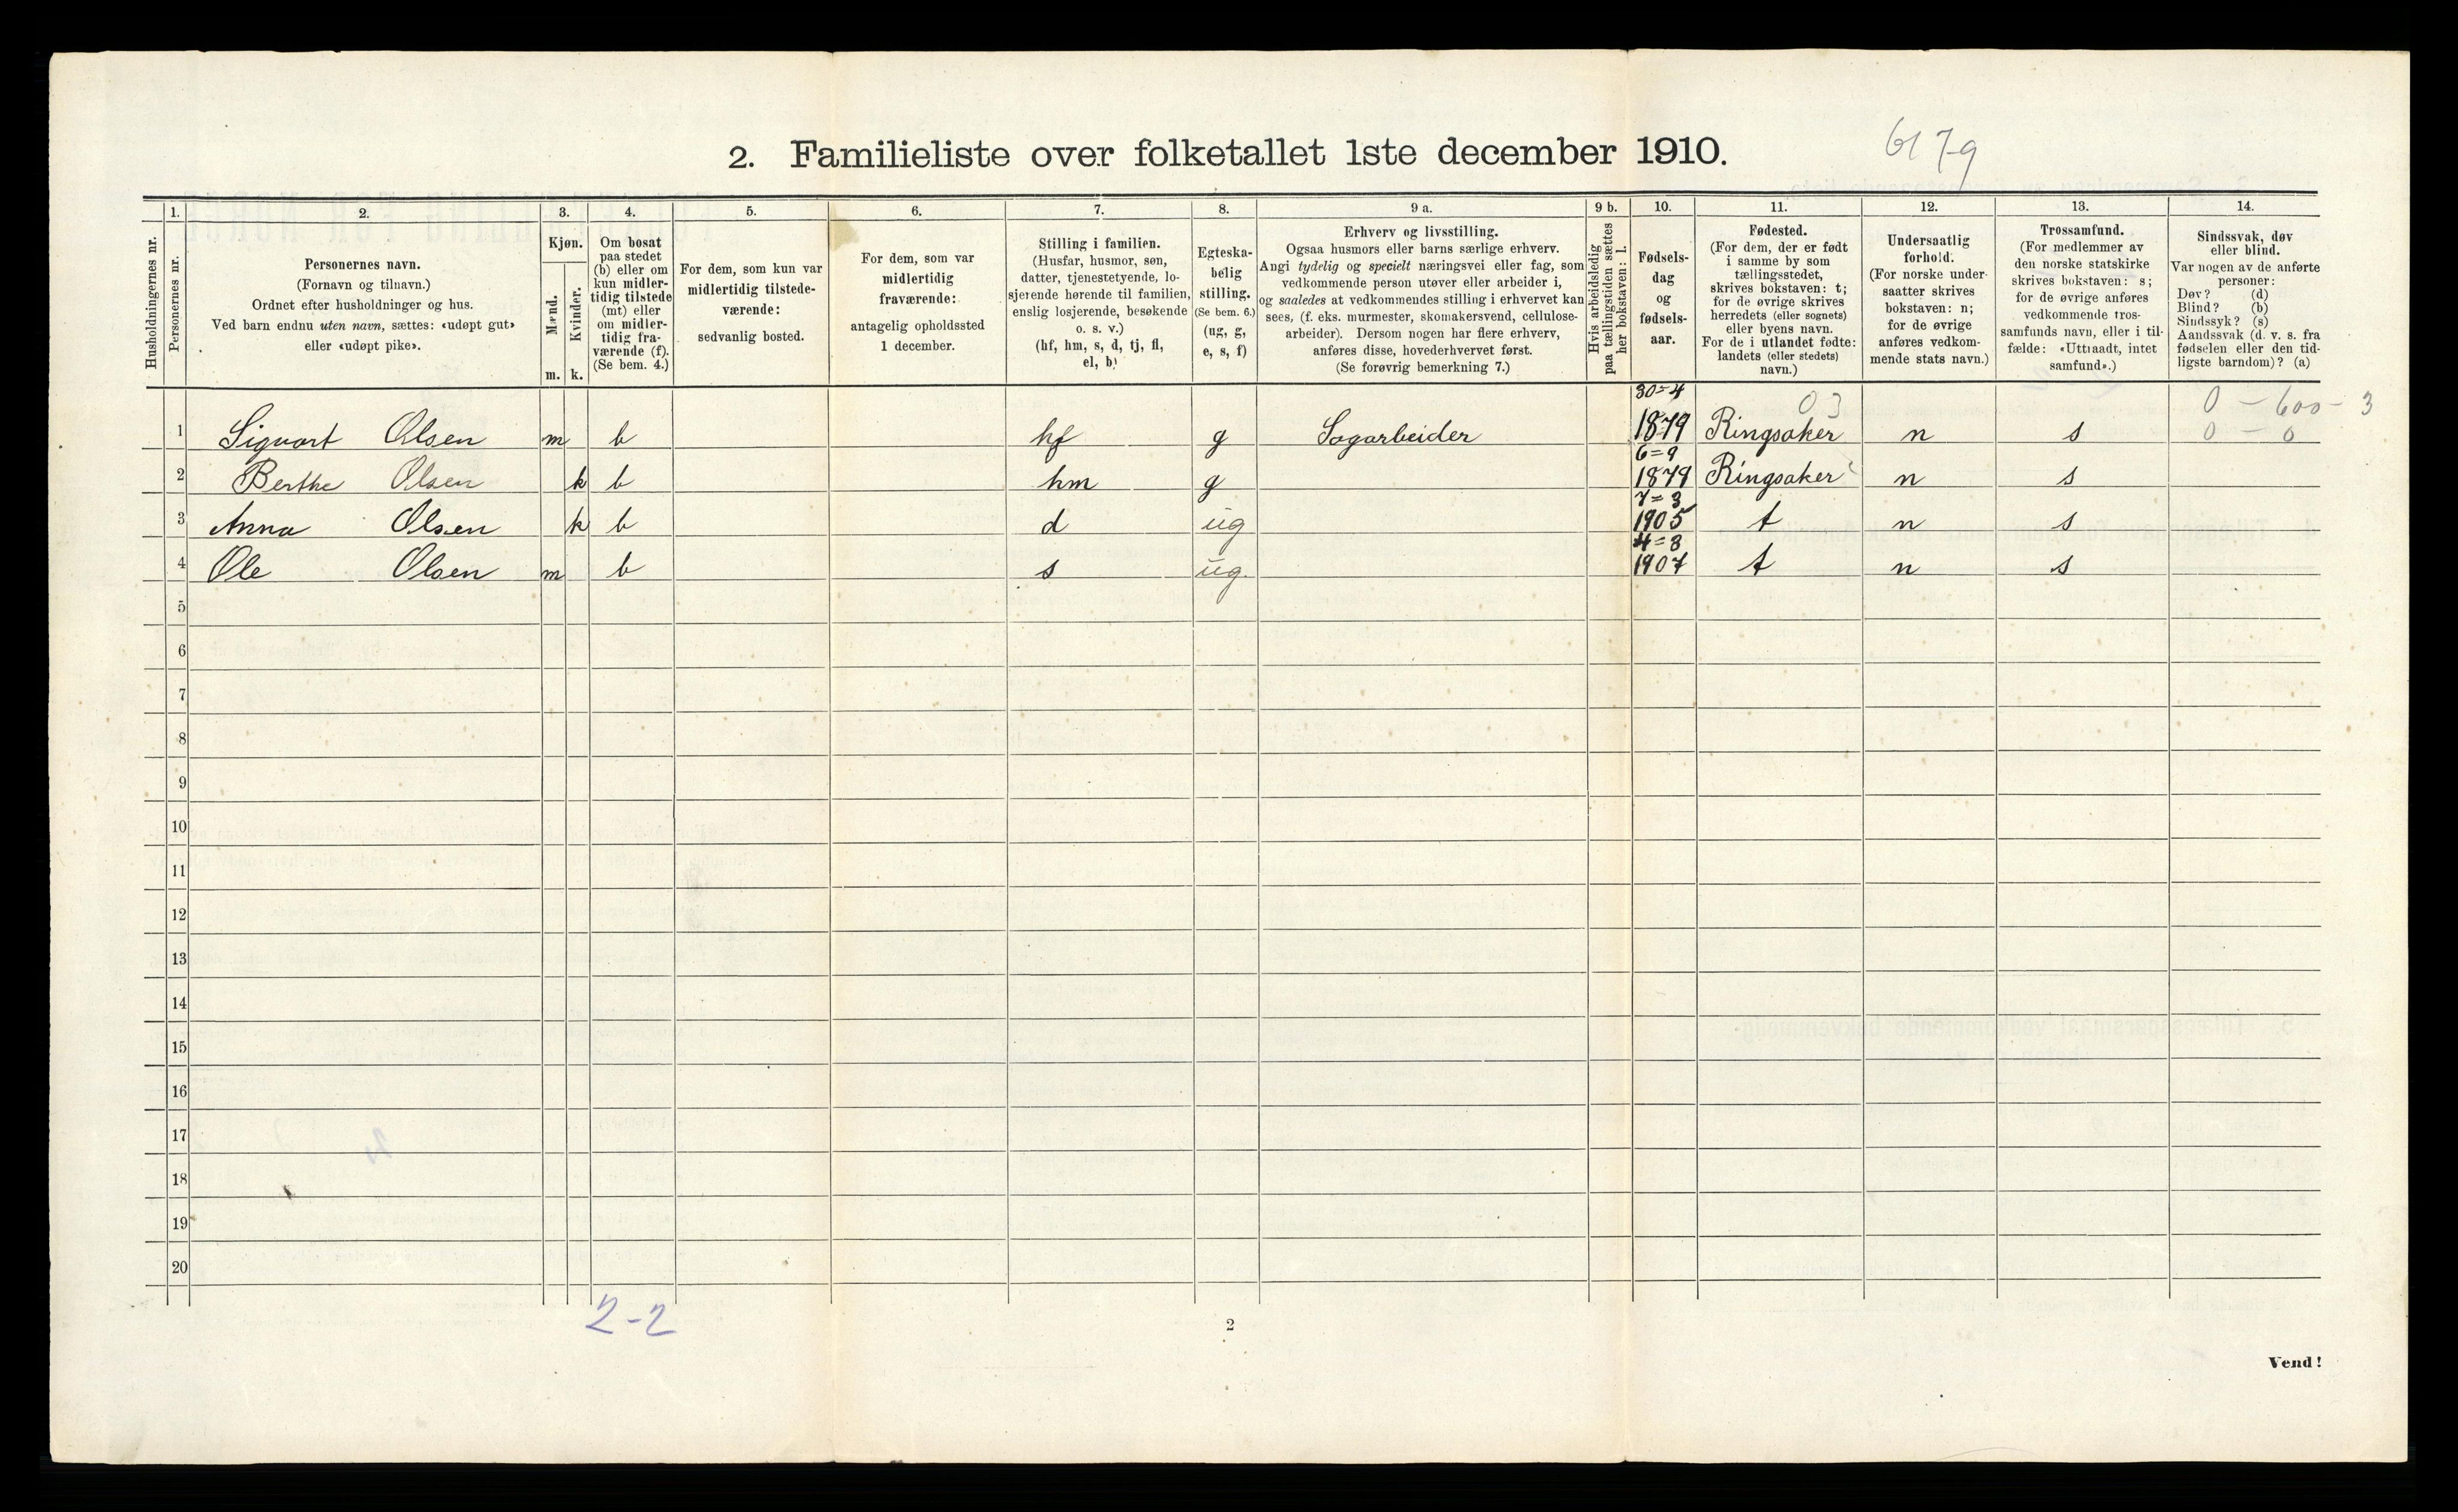 2. Familieliste over folketallet 1ste december 1910.
Husholdningernes nr.
1.
Personernes nr.
2.
Personernes navn.
(Fornavn og tilnavn.)
Ordnet efter husholdninger og hus.
Ved barn endnu uten navn, sættes: «udøpt gut»
eller «udøpt pike».
3.
Kjøn.
Mænd.
Kvinder.
m. k.
4.
Om bosat
paa stedet
(b) eller om
kun midler-
tidig tilstede
(mt) eller
om midler-
tidig fra-
værende (f).
(Se bem. 4.)
5.
For dem, som kun var
midlertidig tilstede-
værende:
sedvanlig bosted.
6.
For dem, som var
midlertidig
fraværende:
antagelig opholdssted
1 december.
7.
Stilling i familien.
(Husfar, husmor, søn,
datter, tjenestetyende, lo-
sjerende hørende til familien,
enslig losjerende, besøkende
o. s. v.)
(hf, hm, s, d, tj, fl,
el, b)
8.
Egteska-
belig
stilling.
(Se bem. 6.)
(ug, g,
e, s, f)
9 a.
Erhverv og livsstilling.
Ogsaa husmors eller barns særlige erhverv.
Angi tydelig og specielt næringsvei eller fag, som
vedkommende person utøver eller arbeider i,
og saaledes at vedkommendes stilling i erhvervet kan
sees, (f. eks. murmester, skomakersvend, cellulose-
arbeider). Dersom nogen har flere erhverv,
anføres disse, hovederhvervet først.
(Se forøvrig bemerkning 7.)
9 b.
Hvis arbeidsledig
paa tællingstiden sættes
her bokstaven: l.
10.
Fødsels-
dag
og
fødsels-
aar.
11.
Fødested.
(For dem, der er født
i samme by som
tællingsstedet,
skrives bokstaven: t;
for de øvrige skrives
herredets (eller sognets)
eller byens navn.
For de i utlandet fødte:
landets (eller stedets)
navn.)
12.
Undersaatlig
forhold.
(For norske under-
saatter skrives
bokstaven: n;
for de øvrige
anføres vedkom-
mende stats navn.)
13.
Trossamfund.
(For medlemmer av
den norske statskirke
skrives bokstaven: s;
for de øvrige anføres
vedkommende tros-
samfunds navn, eller i til-
fælde: «Uttraadt, intet
samfund».)
14.
Sindssvak, døv
eller blind.
Var nogen av de anførte
personer:
Døv? (d)
Blind? (b)
Sindssyk? (s)
Aandssvak (d. v. s. fra
fødselen eller den tid-
ligste barndom)? (a)
30=4 03 0 - 600 - 3
1 Sigvart Olsen m b hf g Sagarbeider 1879 Ringsaker n s 0 - 0
6=9
2 Berthe Olsen k b hm g 1879 Ringsaker n s
7=3
3 Anna Olsen k b d ug 1905 t n s
4=8
4 Ole Olsen m b s ug. 1907 t n s
5
6
7
8
9
10
11
12
13
14
15
16
17
18
19
20
2-2
2
Vend!